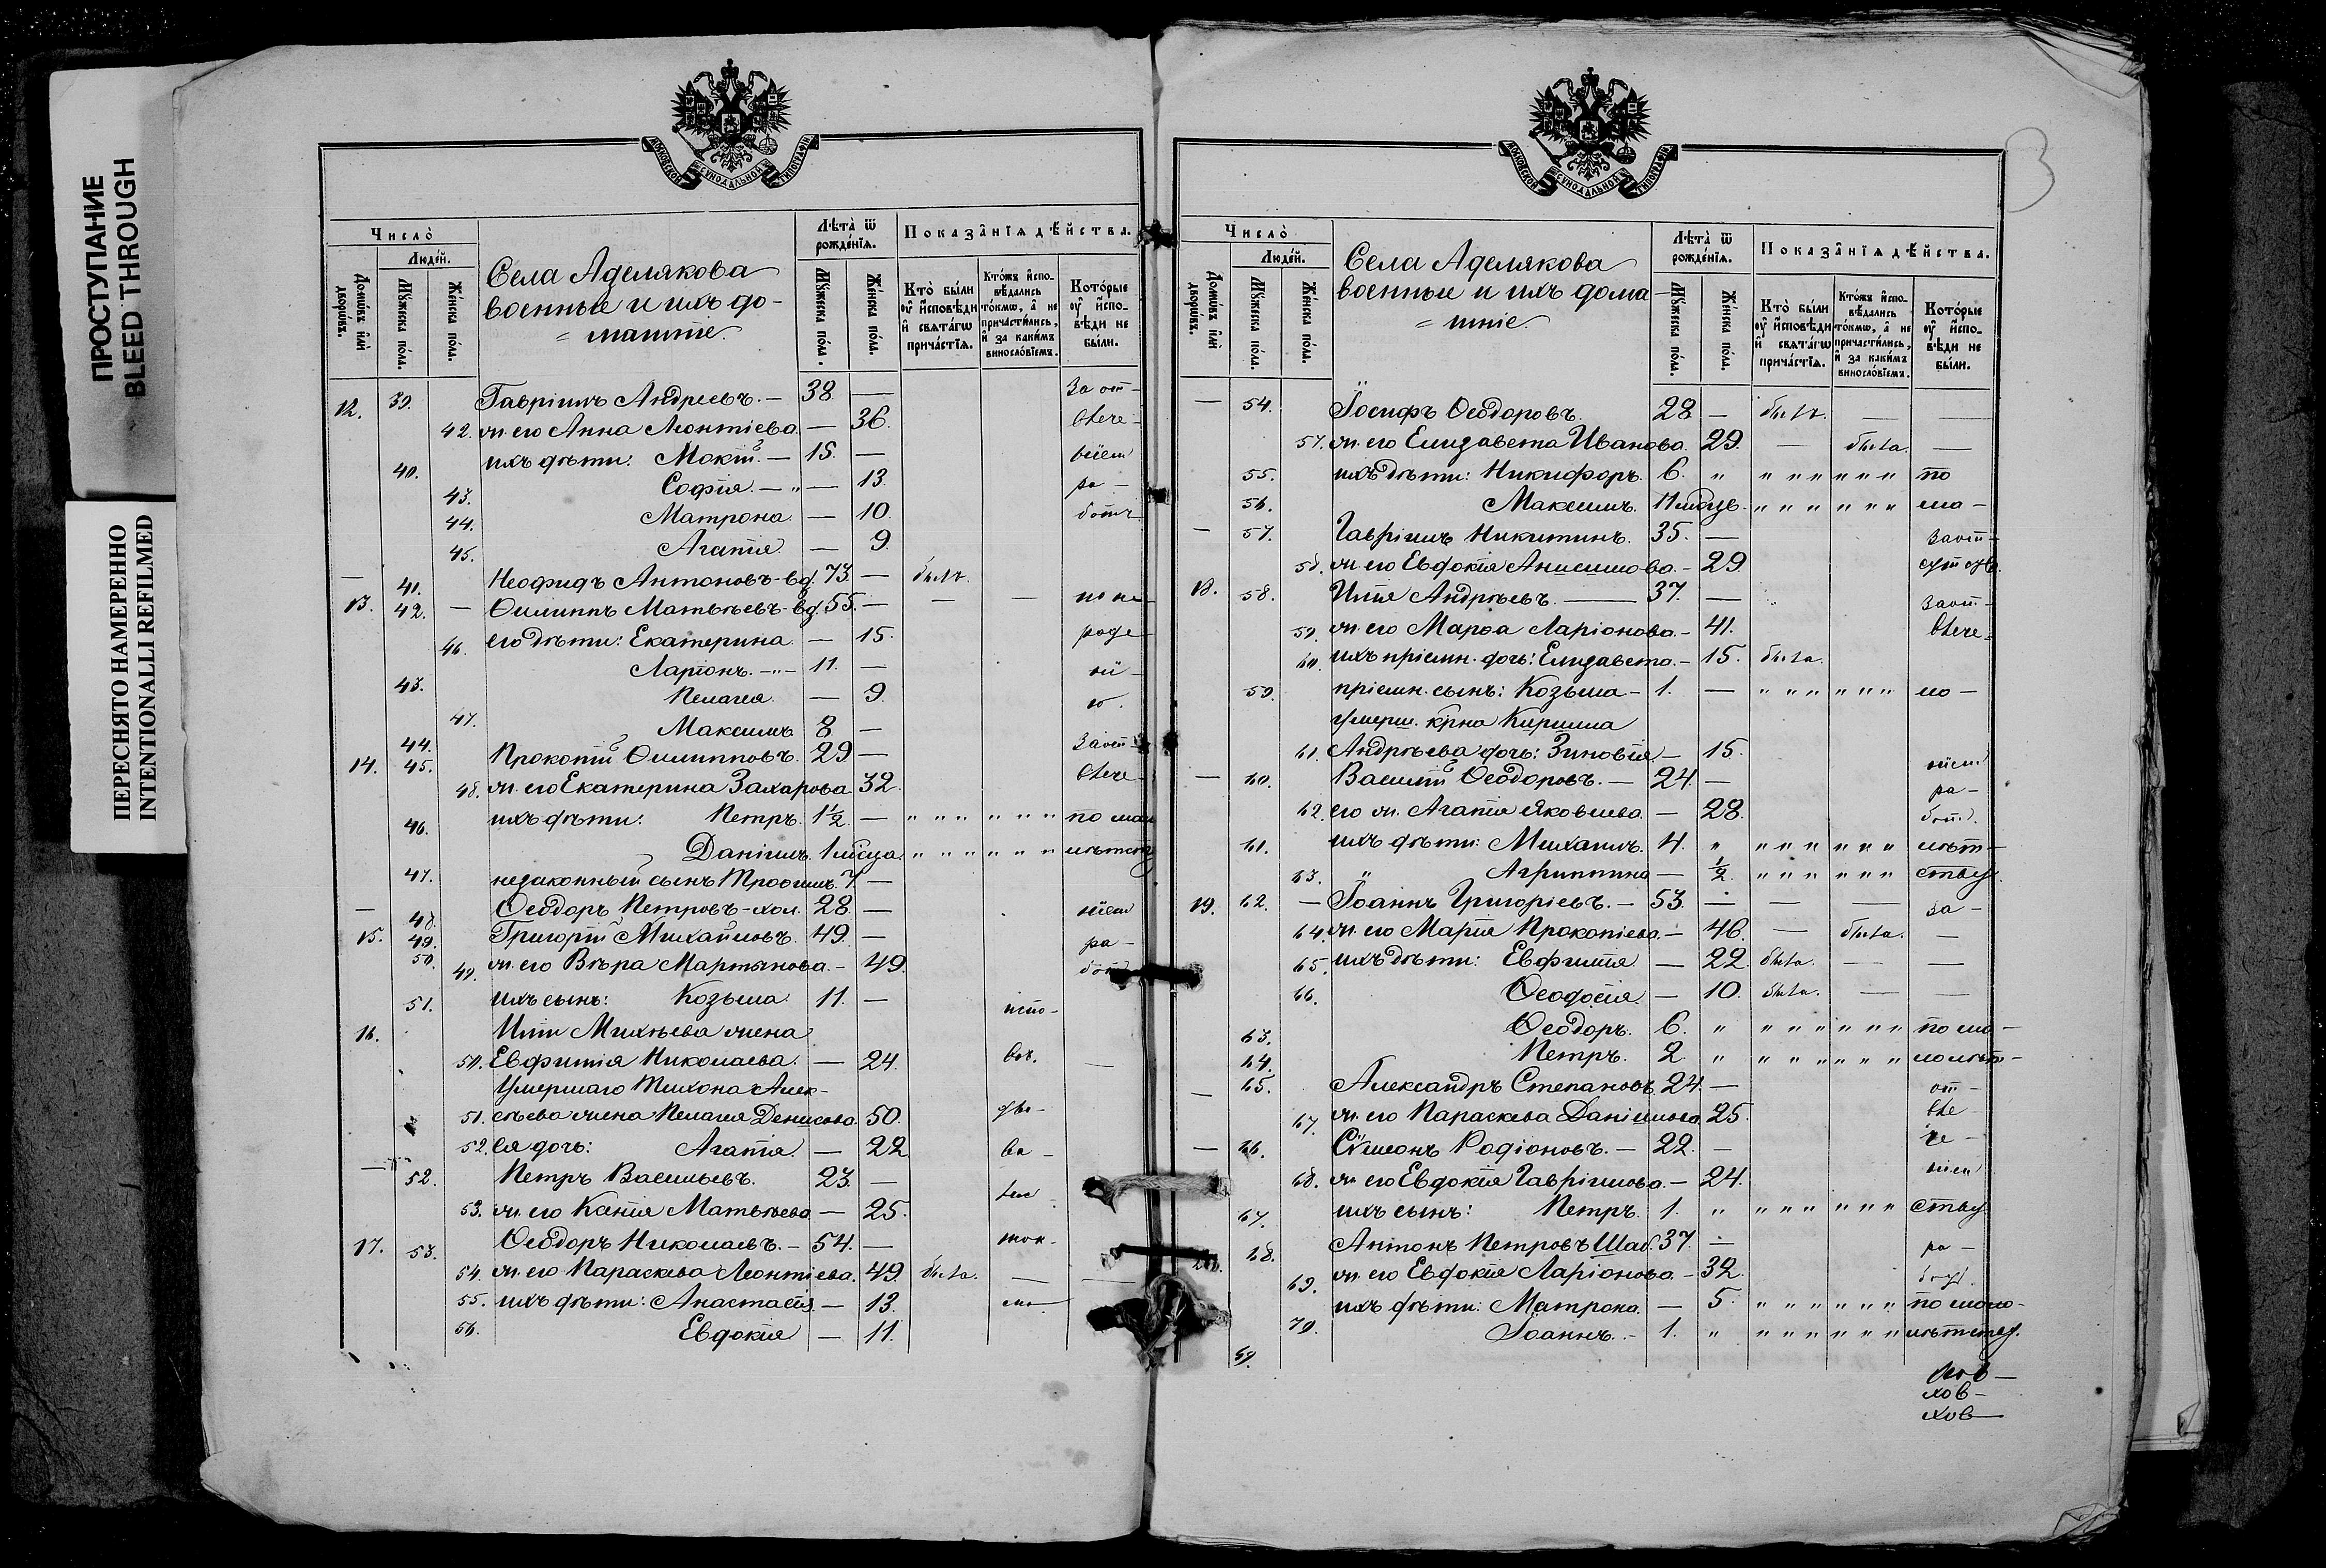 ПРОСТУПАНИЕ
BLEED THROUGH
ПЕРЕСНЯТО НАМЕРЕННО
INTENTIONALLI REFILMED
МОСКОВСКОЙ СѴНОДАЛЬНОЙ ТИПОГРАФІИ
Число̀
Люде́й.
Домо́въ и҆лѝ дворо́въ.
Мꙋ́жеска по́ла.
Же́нска по́ла.
Села Аделякова
военные и ихъ до-
=машніе.
Лѣ́та ѿ рожде́нїѧ.
Мꙋ́жеска по́ла.
Же́нска по́ла.
Показа̑нїѧ дѣ́йства.
Кто̀ бы́ли ᲂу҆ и҆сповѣди и҆ свѧта́гѡ прича́стїѧ.
Кто́жъ и҆сповѣ́дались то́кмѡ, а҆ не причасти́лись, и҆ за каки́мъ винословїемъ.
Кото́рые ᲂу҆ и҆сповѣ́ди не бы́ли.
12. 39. Гавріилъ Андреевъ. — 38 — За от-
42. ж. его Анна Леонтіева. — 36.
40. ихъ дѣти: Мокій. — 15. —
43. Софія. — „ — 13. ра-
44. Матрона. — 10.
45. Агаѳія — 9.
— 41. Неофидъ Антоновъ-вд. 73. — былъ.
13. 42. — Филиппъ Матвѣевъ-вд. 55. — — —
46. его дѣти: Екатерина. — 15.
43. Ларіонъ. — „ — 11. —
47. Пелагея. — 9.
44. Максимъ 8 —
14. 45. Прокопій Филипповъ. 29 — За от-
48. ж. его Екатерина Захарова 32.
46. ихъ дѣти: Петръ. 1½. — „ „ „ „ „ „ по мало
47. Даніилъ. 1 мѣсяца. „ „ „ „ „ „ лѣтству
незаконный сынъ Трофимъ. 7 —
— 48. Ѳеодоръ Петровъ-хол. 28. —
15. 49. Григорій Михайловъ. 49. — ра-
50. 49. ж. его Вѣра Мартьянова. — 49.
51. ихъ сынъ: Козьма. 11. —
16. Или Михѣева жена
50. Евфимія Николаева. — 24. —
Умершаго Тихона Алек-
51. сѣева жена Пелагея Денисова. 50.
52. ея дочь: Агаѳія. — 22
— 52. Петръ Васильевъ. 23. —
53. ж. его Капія Матвѣева — 25.
17. 53. Ѳеодоръ Николаевъ. — 54. —
54. ж. его Параскева Леонтіева. 49. была. — —
55. ихъ дѣти: Анастасія — 13.
56. Евдокія — 11.
3
МОСКОВСКОЙ СѴНОДАЛЬНОЙ ТИПОГРАФІИ
Число̀
Люде́й.
Домо́въ и҆лѝ дворо́въ.
Мꙋ́жеска по́ла.
Же́нска по́ла.
Села Аделякова
военные и ихъ дома-
=шніе.
Лѣ́та ѿ рожде́нїѧ.
Мꙋ́жеска по́ла.
Же́нска по́ла.
Показа̑нїѧ дѣ́йства.
Кто̀ бы́ли ᲂу҆ и҆сповѣди и҆ свѧта́гѡ прича́стїѧ.
Кто́жъ и҆сповѣ́дались то́кмѡ, а҆ не причасти́лись, и҆ за каки́мъ винословїемъ.
Кото́рые ᲂу҆ и҆сповѣ́ди не бы́ли.
— 54. Іосифъ Ѳеодоровъ. 28 — былъ. — —
57. ж. его Елизавета Иванова. 29. — была. —
55. ихъ дѣти: Никифоръ. 6. „ „ „ „ „ „ „ по
56. Максимъ. 11 мѣсяц. „ „ „ „ „ „ ма-
— 57. Гавріилъ Никитинъ. 35. — За от-
58. ж. его Евдокія Анисимова. — 29
18. 58. Илія Андрѣевъ. — 37. — За от-
59. ж. его Марѳа Ларіонова. — 41.
60. ихъ пріемн. дочь: Елизавета. — 15. была.
59. пріемн. сынъ: Козьма — 1. — „ „ „ „ „ „ ло-
умерш. крна Кирилла
61. Андрѣева дочь: Зиновія — 15.
— 60. Василій Ѳеодоровъ. — 24. — ра-
62. его ж. Агаѳія Яковлева. — 28.
61. ихъ дѣти: Михаилъ. 4. „ „ „ „ „ „ „ лѣт-
63. „ Агриппина — ½ „ „ „ „ „ „ ству.
19. 62. — Іоаннъ Григоріевъ. — 53. — — — за-
64. ж. его Марія Прокопіева. — 46. — была. —
65. ихъ дѣти: Евфимія. — 22. была. — —
66. Ѳеодосія. — 10. была. — —
63. Ѳеодоръ. 6. „ „ „ „ „ „ „ по ма-
64. Петръ. 2. „ „ „ „ „ „ „ лолѣт-
— 65. Александръ Степановъ. 24. — от-
67. ж. его Параскева Даніилова. 25.
— 66. Сѵмеонъ Родіоновъ. — 22. —
68. ж. его Евдокія Гавріилова. — 24.
67. ихъ сынъ: Петръ. 1. „ „ „ „ „ „ „ ству
68. Антонъ Петровъ Шаб. 37. — ра-
69. ж. его Евдокія Ларіонова. — 32.
70. ихъ дѣти: Матрона. — 5. „ „ „ „ „ „ по мало-
69. Іоаннъ. — 1. „ „ „ „ „ „ „ лѣтству.
хов-
хов-